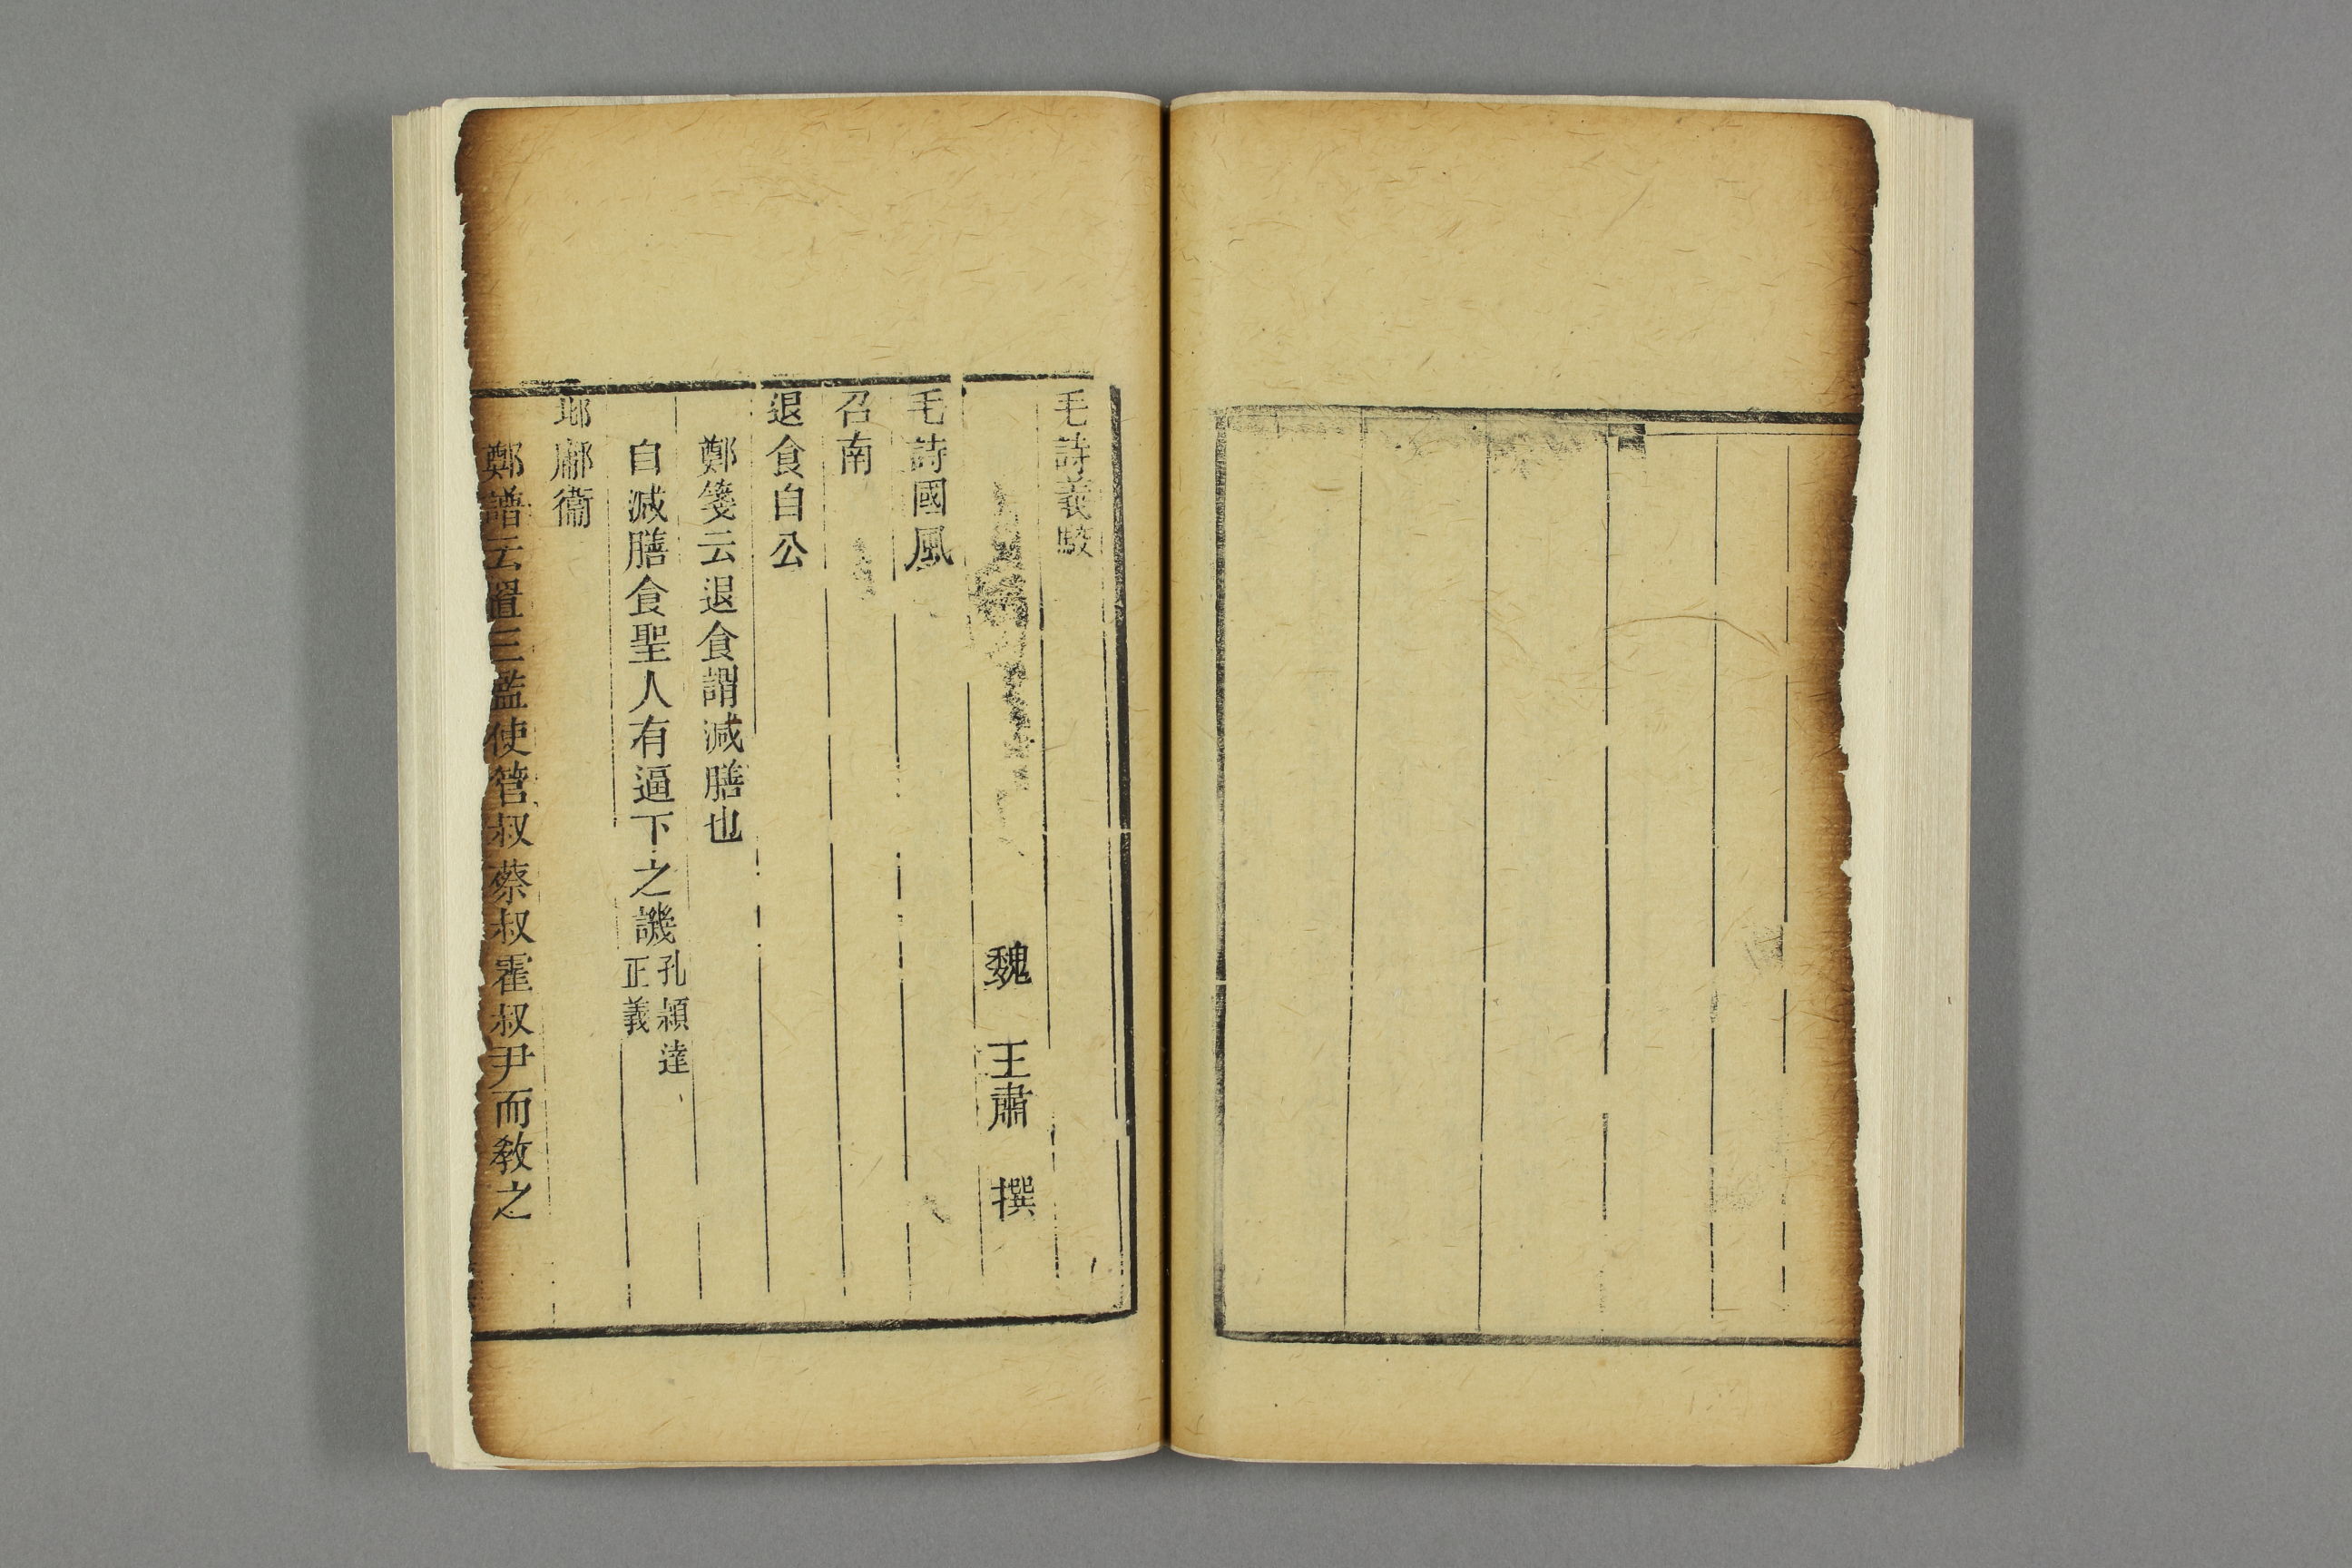 毛詩義駮
魏 王肅 撰
毛詩國風
召南
退食自公
鄭箋云退食謂減膳也
自減膳食聖人有逼下之譏孔穎達
正義
邶鄘衞
鄭譜云置三監使管叔蔡叔霍叔尹而敎之